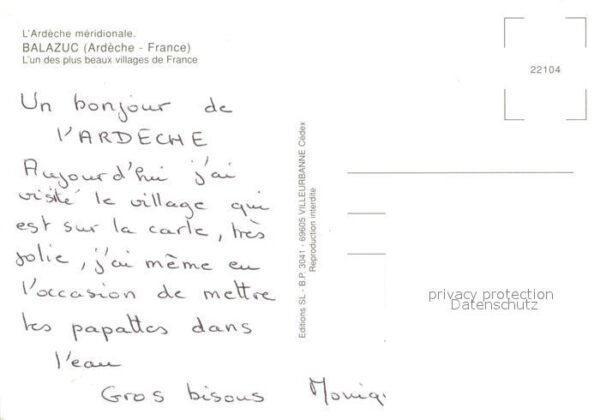 L'Ardèche méridionale.
BALAZUC (Ardèche - France)
L'un des plus beaux villages de France
22104
Un bonjour de
l'ARDECHE
Aujourd'hui j'ai
visité le village qui
est sur la carte, très
jolie, j'ai même eu
l'occasion de mettre
les papattes dans
l'eau
Gros bisous Moniq.
Editions SL - B.P. 3041 - 69605 VILLEURBANNE Cédex
Reproduction interdite
privacy protection
Datenschutz